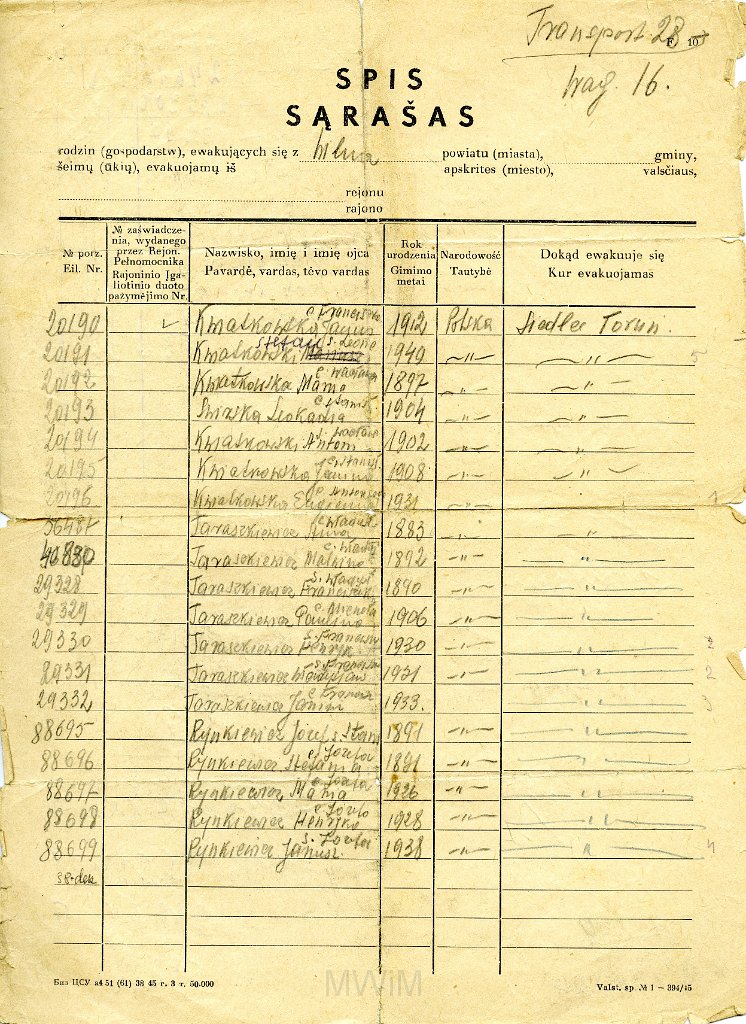 Transport 28
F. 10
wag. 16.
SPIS
SĄRAŠAS
rodzin (gospodarstw), ewakujących się z Wilna powiatu (miasta), gminy,
šeimų (ūkių), evakuojamų iš apskrites (miesto), valsčiaus,
rejonu
rajono
№ porz. Eil. Nr.
№ zaświadcze- nia, wydanego przez Rejon. Pełnomocnika Rajoninio Įga- liotinio duoto pažymėjimo Nr.
Nazwisko, imię i imię ojca Pavardė, vardas, tėvo vardas
Rok urodzenia Gimimo metai
Narodowość Tautybė
Dokąd ewakuuje się Kur evakuojamas
20190 ✓ Kwiatkowska c. Franciszka 1912 Polska Siedlce Toruń.
20191 Kwiatkowski Stefan s. Leona 1940 –"– –"– 5
20192 Kwiatkowska Maria c. 1897 –"– –"–
20193 Leokadia c. 1904 –"– –"–
20194 Kwiatkowski Antoni s. Wacława 1902 –"– –"–
20195 Kwiatkowska Janina c. Stanis. 1908 –"– –"–
20196 Kwiatkowska Eugenia c. Antoniego 1931 –"– –"– 1
56487 Taraszkiewicz Anna c. 1883 –"– –"–
40880 Taraszkiewicz Malwina c. 1892 –"– "
29328 Taraszkiewicz Franciszek s. 1890 –"– –"–
29329 Taraszkiewicz Paulina c. Michała 1906 –"– –"–
29330 Taraszkiewicz Henryk s. 1930 –"– –"– 2
29331 Taraszkiewicz Władysław s. 1931 –"– –"– 2
29332 Taraszkiewicz Janina c. 1933. –"– –"– 3
88695 Rynkiewicz Józef s. Stani 1891 –"– –"–
88696 Rynkiewicz Stefania c. Józefa 1891 –"– –"–
88697 Rynkiewicz Maria c. Józefa 1926 –"– –"–
88698 Rynkiewicz Henryka c. Józefa 1928 –"– –"–
88699 Rynkiewicz Janusz. s. Józefa 1938 –"– –"– 4
Биз ЦСУ а4 51 (61) 38 45 г. 3 т. 50.000
Valst. sp. № 1 – 394/45
MWiM